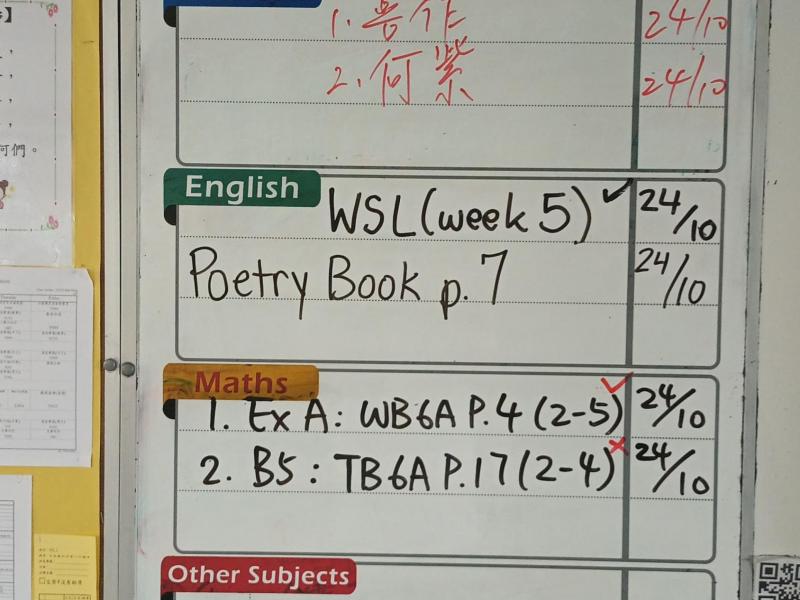 1. 普作 24/10
2. 何紫 24/10
English
WSL (week 5) ✓ 24/10
Poetry Book p.7 24/10
Maths
1. Ex A: WB6A P.4 (2-5) ✓ 24/10
2. B5: TB6A P.17 (2-4) × 24/10
Other Subjects
何們。